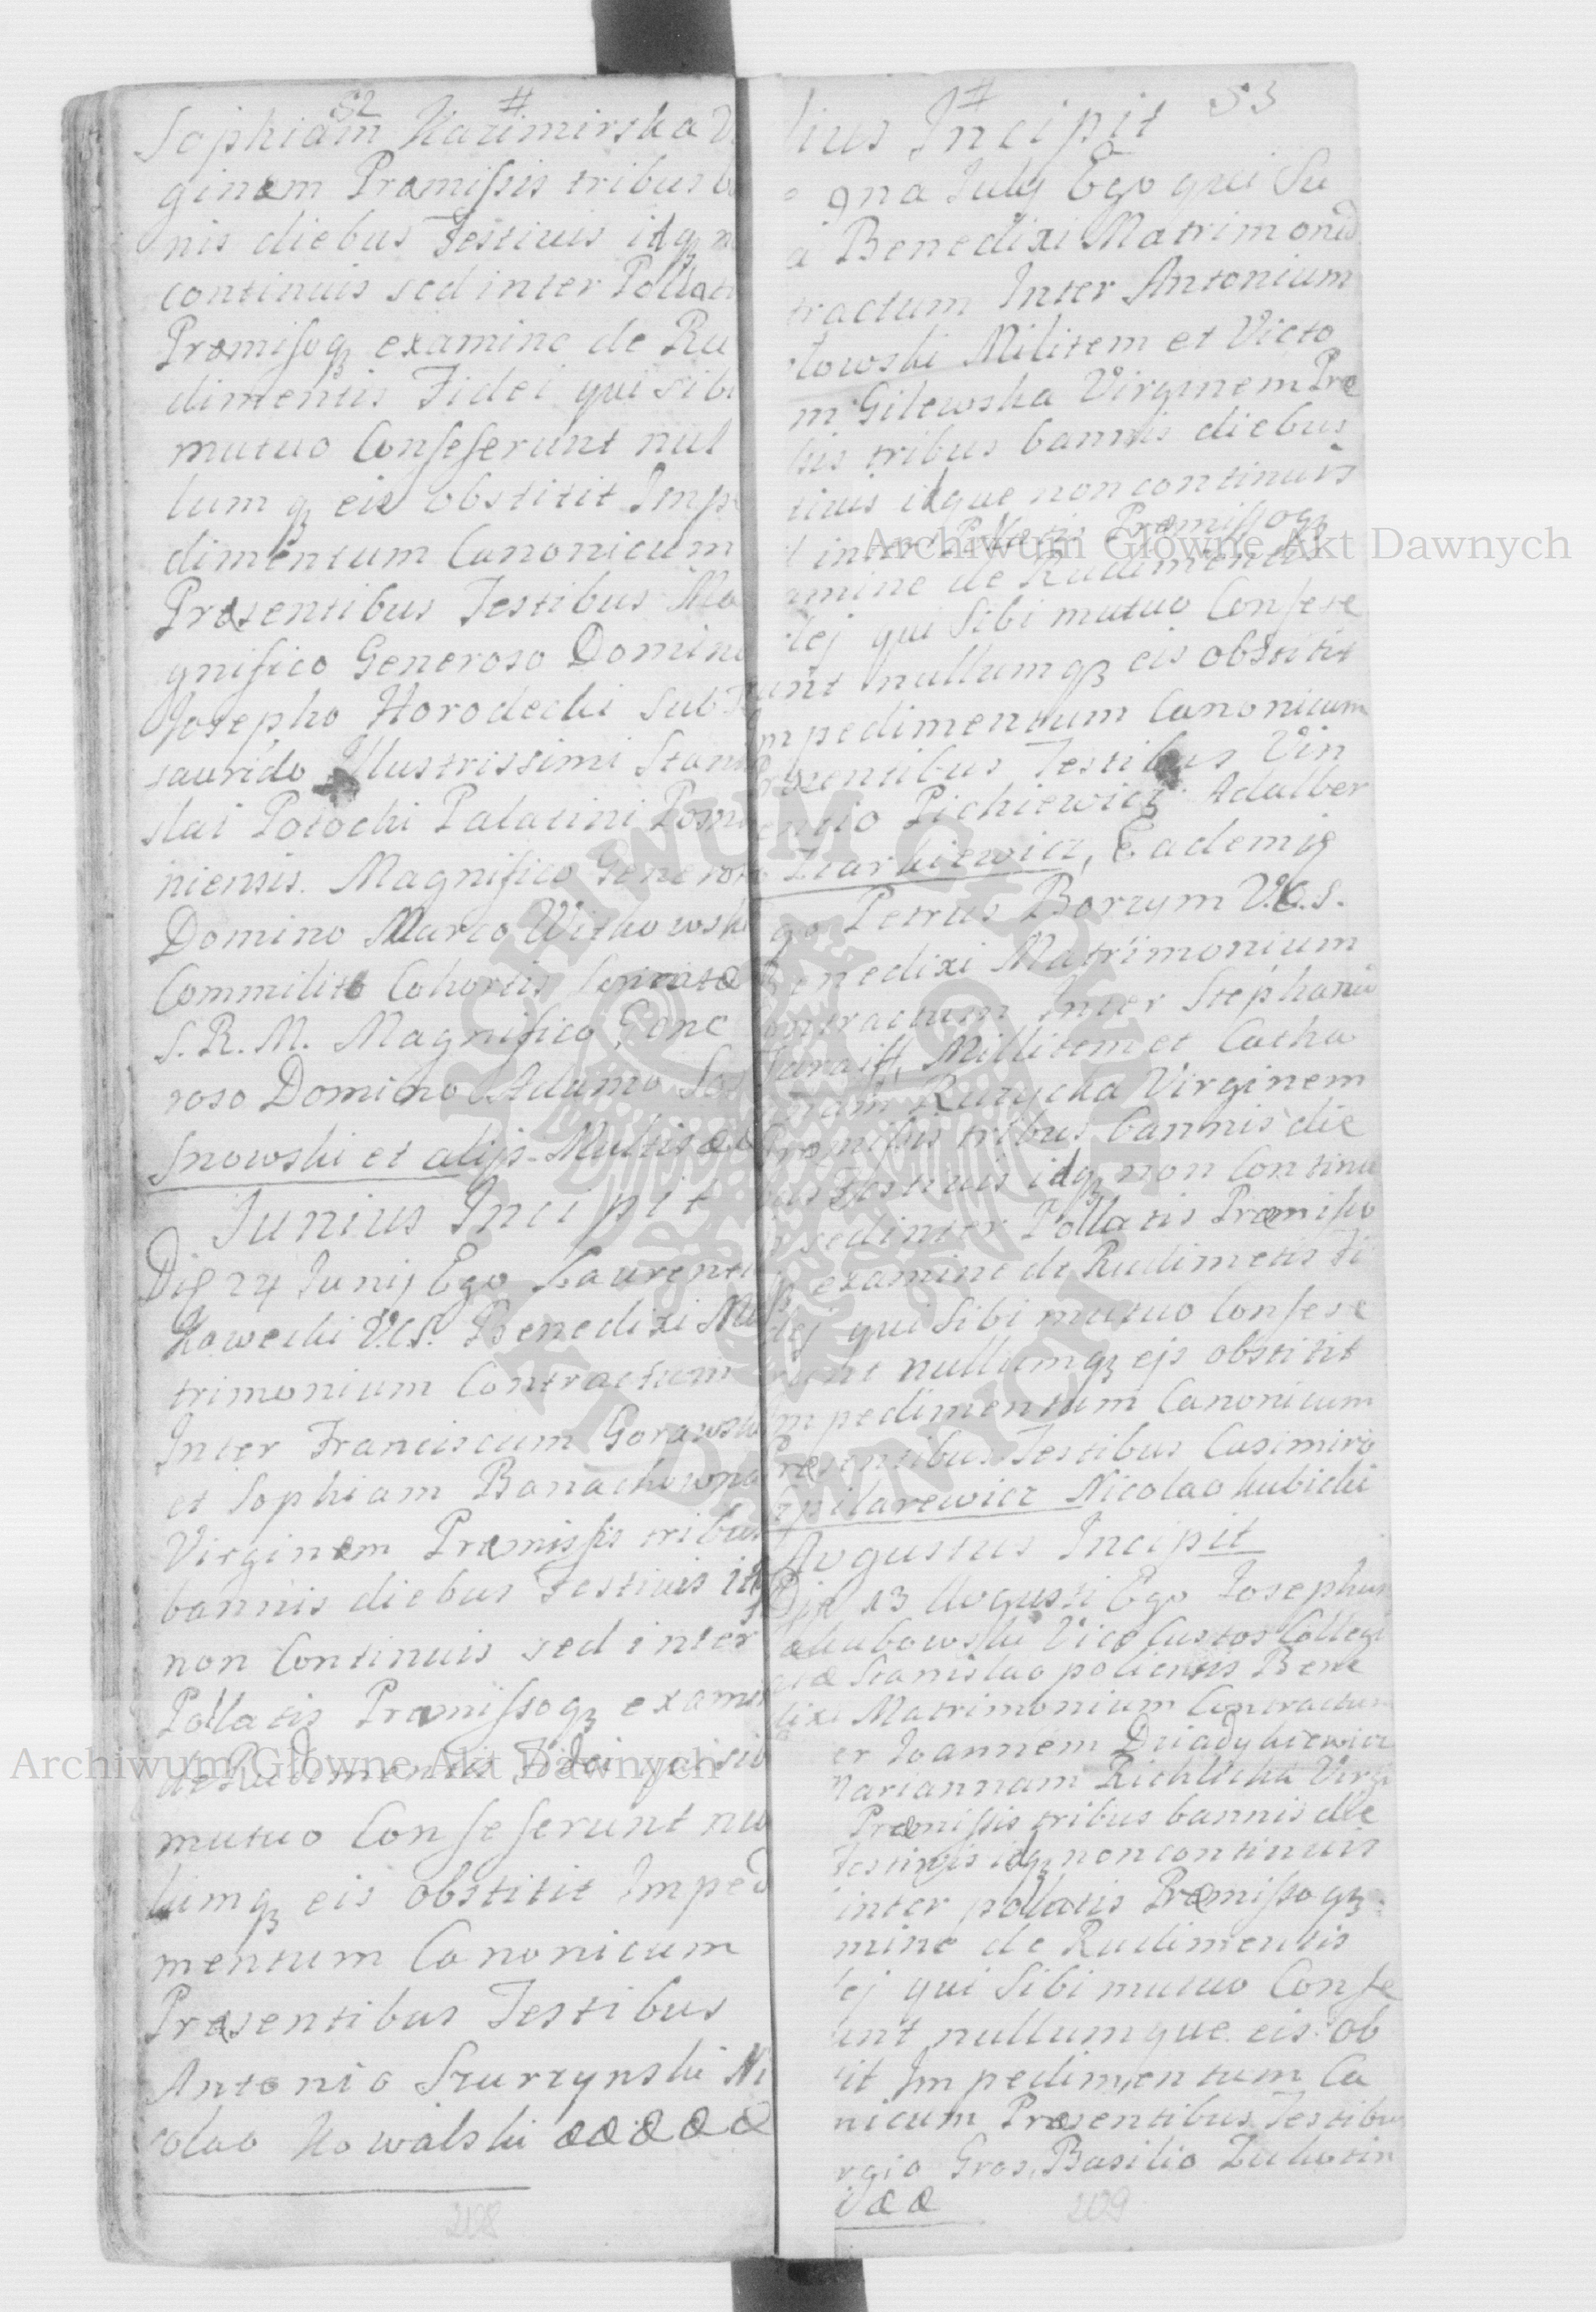 52 #
Sophiam Kazimirska Vi
ginem Præmissis tribus b
nis diebus Festiuis idqz n
continuis sed inter Pollat
Præmissoqz examine de Ru
dimentis Fidei qui sibi
mutuo Conseserunt nul
lum qz eis obstitit Impe
dimentum Canonicum
Præsentibus Testibus Ma
gnifico Generoso Domino
Josepho Horodecki Sub
saurido Illustrissimi Stani
slai Potocki Palatini Posn
niensis. Magnifico Generoso
Domino Marco Witkowski
Commilito Cohortis
S. R. M. Magnifico Gene
roso Domino Adamo Sos
snowski et alijs Multis
Junius Incipit
Die 24 Junij Ego Laurenti
Kawecki V.C.S. Benedixi Ma
trimonium Contractum
Inter Franciscum Gorawski
et Sophiam Banachowna
Virginem Præmissis tribus
bannis diebus Festiuis id
non Continuis sed inter
Pollatis Præmissoqz exami
de Rudimentis Fidei qui sib
mutuo Conseserunt nu
lumqz eis obstitit Imped
mentum Canonicum
Præsentibus Testibus
Antonio Szurzynski Ni
colao Kowalski
208
53
#
lius Incipit
9na July Ego qui Su
a Benedixi Matrimoniu
tractum Inter Antonium
towski Militem et Victo
m Gilewska Virginem Præ
sis tribus bannis diebus
tiuis idque non continuis
inter Pollatis Præmissoqz
amine de Rudimentis
dej qui Sibi mutuo Consese
unt nullumqz eis obstitit
mpedimentum Canonicum
Præsentibus Testibus Vin
entio Pichiewicz Adalber
Ziarkiewicz, Eademiqz
go Petrus Borzym V.C.S.
Benedixi Matrimonium
ontractum Inter Stephanu
Millitem et Catha
nam Ruzycka Virginem
Præmissis tribus bannis die
us Festiuis idqz non Continu
sed inter Pollatis Præmisso
qz examine de Rudimetis Fi
dej qui Sibi mutuo Consese
runt nullumqz ejs obstitit
mpedimentum Canonicum
Præsentibus Testibus Casimiro
Spilarewicz Nicolao Kubicki
Augustus Incipit
Die 13 Augusti Ego Josephus
akubowski Vice Custos Collegi
atæ Stanislaopoliensis Bene
dixi Matrimonium Contractum
er Joannem Dziadykiewicz
Mariannam Richlicka Virgi
Præmissis tribus bannis die
Festiuis idqz non continuis
inter pollatis Præmissoqz
mine de Rudimentis
ej qui Sibi mutuo Conse
unt nullumque eis ob
tit Impedimentum Ca
nicum Præsentibus Testibus
rgio Gros, Basilio Zukotin
209
Archiwum Główne Akt Dawnych
Archiwum Główne Akt Dawnych
ARCHIWUM GŁÓWNE AKT DAWNYCH